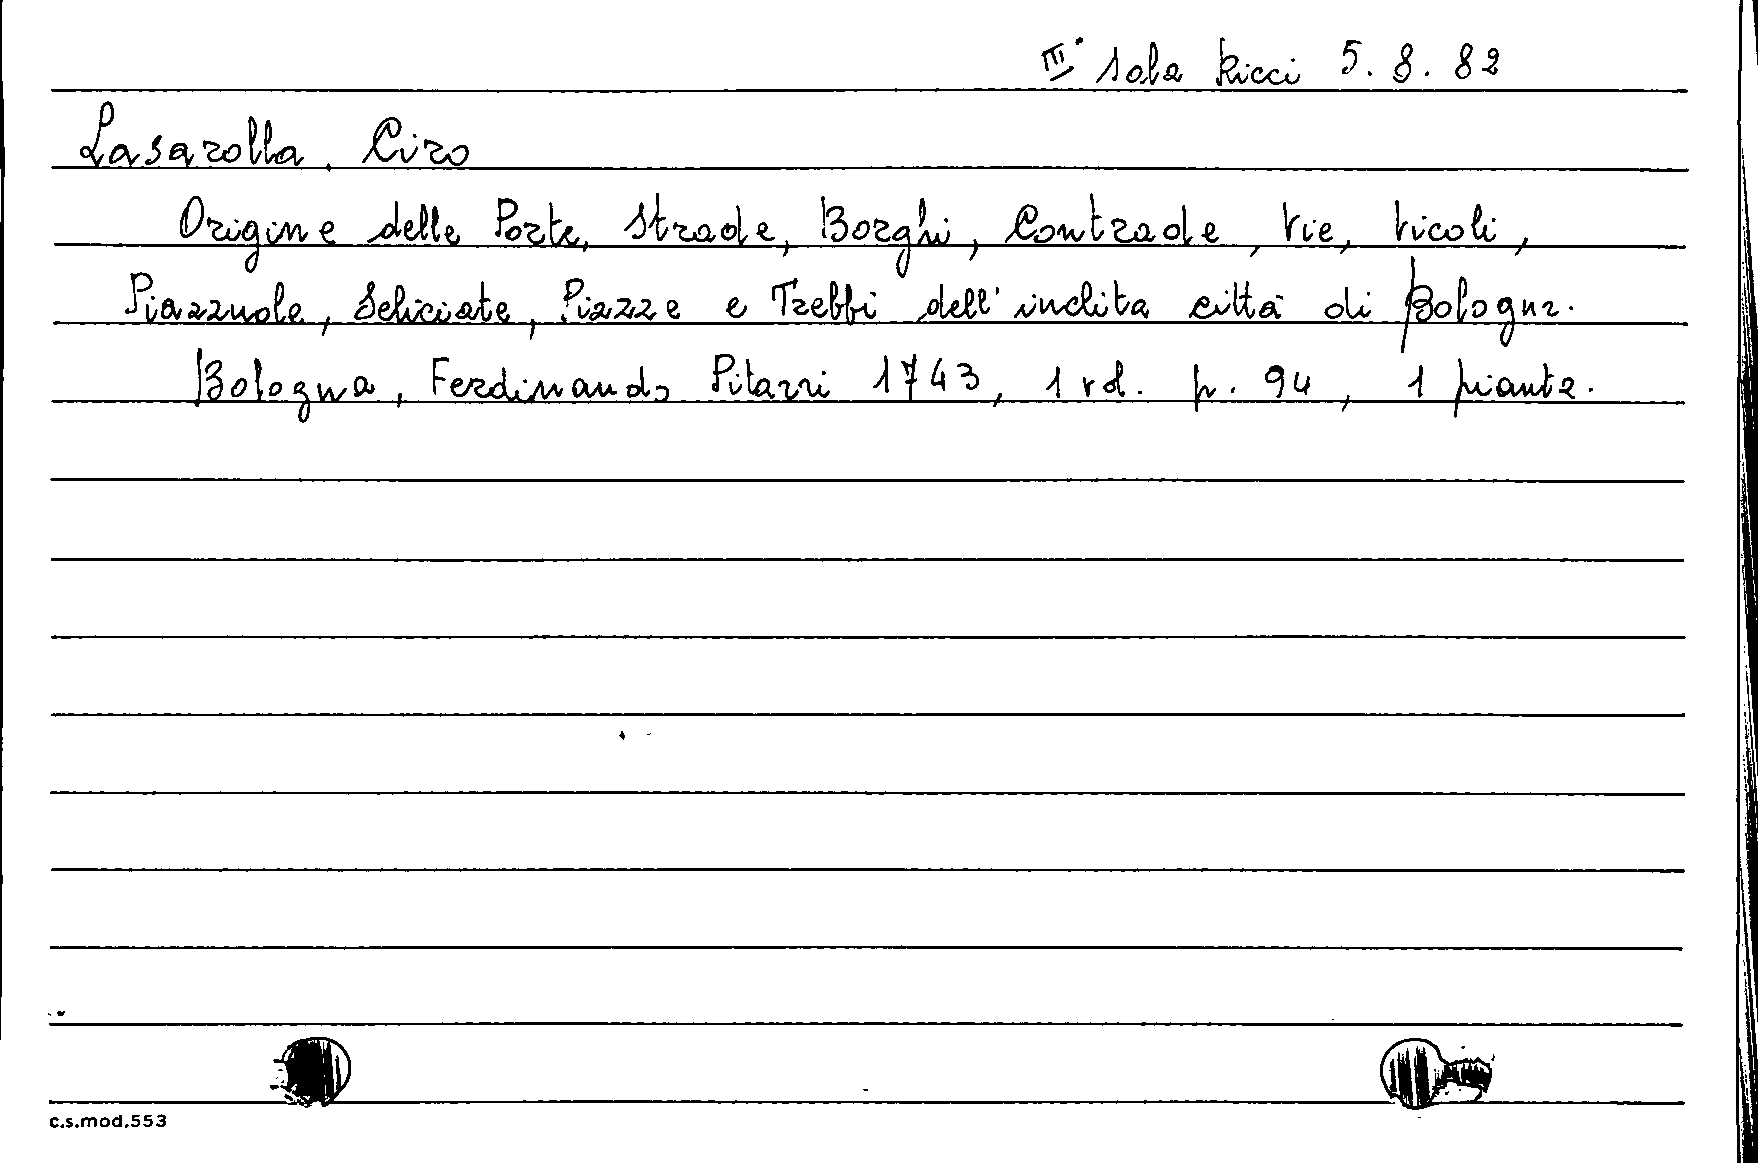 III° Sala Ricci 5. 8. 82
Lasarolla, Ciro
Origine delle Porte, Strade, Borghi, Contrade, Vie, Vicoli,
Piazzuole, Seliciate, Piazze e Trebbi dell'inclita città di Bologna.
Bologna, Ferdinando Pisarri 1743, 1 vol. p. 94, 1 pianta.
c.s.mod.553